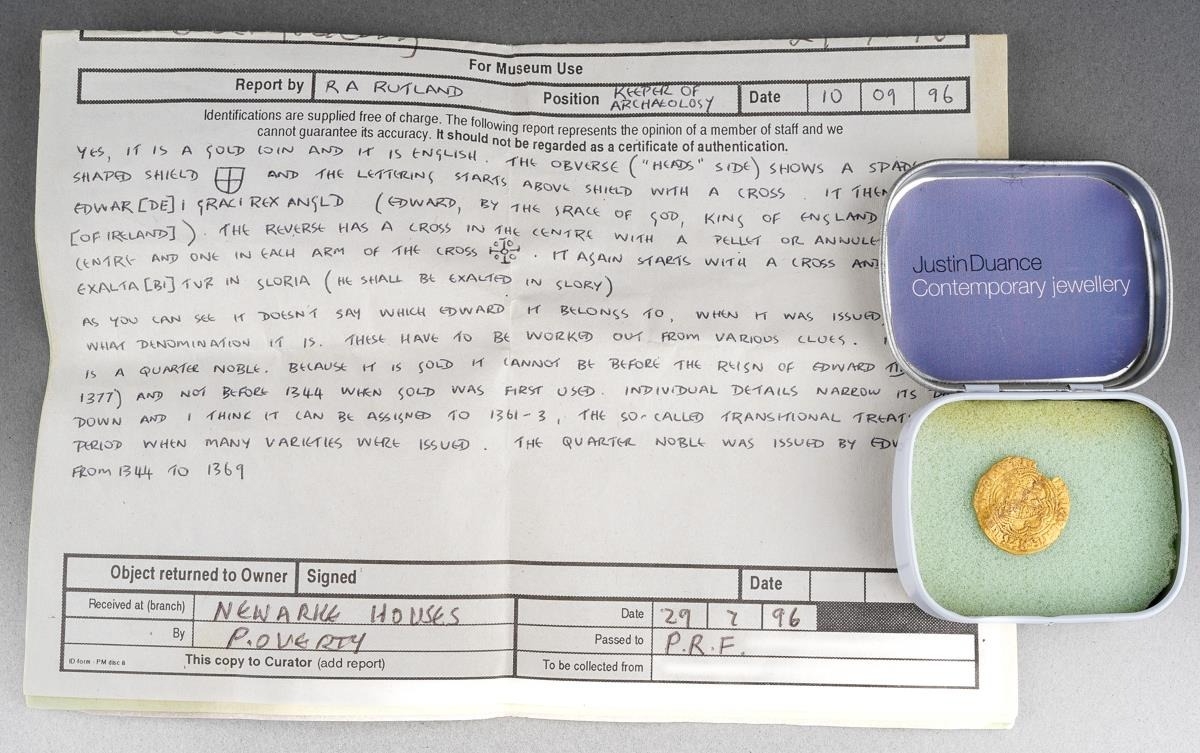 For Museum Use
Report by R A RUTLAND Position KEEPER OF ARCHAEOLOGY Date 10 09 96
Identifications are supplied free of charge. The following report represents the opinion of a member of staff and we
cannot guarantee its accuracy. It should not be regarded as a certificate of authentication.
YES, IT IS A GOLD COIN AND IT IS ENGLISH. THE OBVERSE ("HEADS" SIDE) SHOWS A SPADE
SHAPED SHIELD AND THE LETTERING STARTS ABOVE SHIELD WITH A CROSS. IT THEN
EDWAR[DE]I GRACI REX ANGLD (EDWARD, BY THE GRACE OF GOD, KING OF ENGLAND
[OF IRELAND]). THE REVERSE HAS A CROSS IN THE CENTRE WITH A PELLET OR
CENTRE AND ONE IN EACH ARM OF THE CROSS. IT AGAIN STARTS WITH A CROSS AND
EXALTA[BI]TUR IN GLORIA (HE SHALL BE EXALTED IN GLORY)
AS YOU CAN SEE IT DOESN'T SAY WHICH EDWARD IT BELONGS TO, WHEN IT WAS ISSUED,
WHAT DENOMINATION IT IS. THESE HAVE TO BE WORKED OUT FROM VARIOUS CLUES.
IS A QUARTER NOBLE. BECAUSE IT IS GOLD IT CANNOT BE BEFORE THE REIGN OF EDWARD
1377) AND NOT BEFORE 1344 WHEN GOLD WAS FIRST USED. INDIVIDUAL DETAILS NARROW ITS
DOWN AND I THINK IT CAN BE ASSIGNED TO 1361-3, THE SO-CALLED TRANSITIONAL TREATY
PERIOD WHEN MANY VARIETIES WERE ISSUED. THE QUARTER NOBLE WAS ISSUED BY
FROM 1344 TO 1369
Object returned to Owner Signed Date
Received at (branch) NEWARKE HOUSES Date 29 7 96
By P. OVERTY Passed to P.R.F.
ID form - PM disc 8 This copy to Curator (add report) To be collected from
Justin Duance
Contemporary jewellery